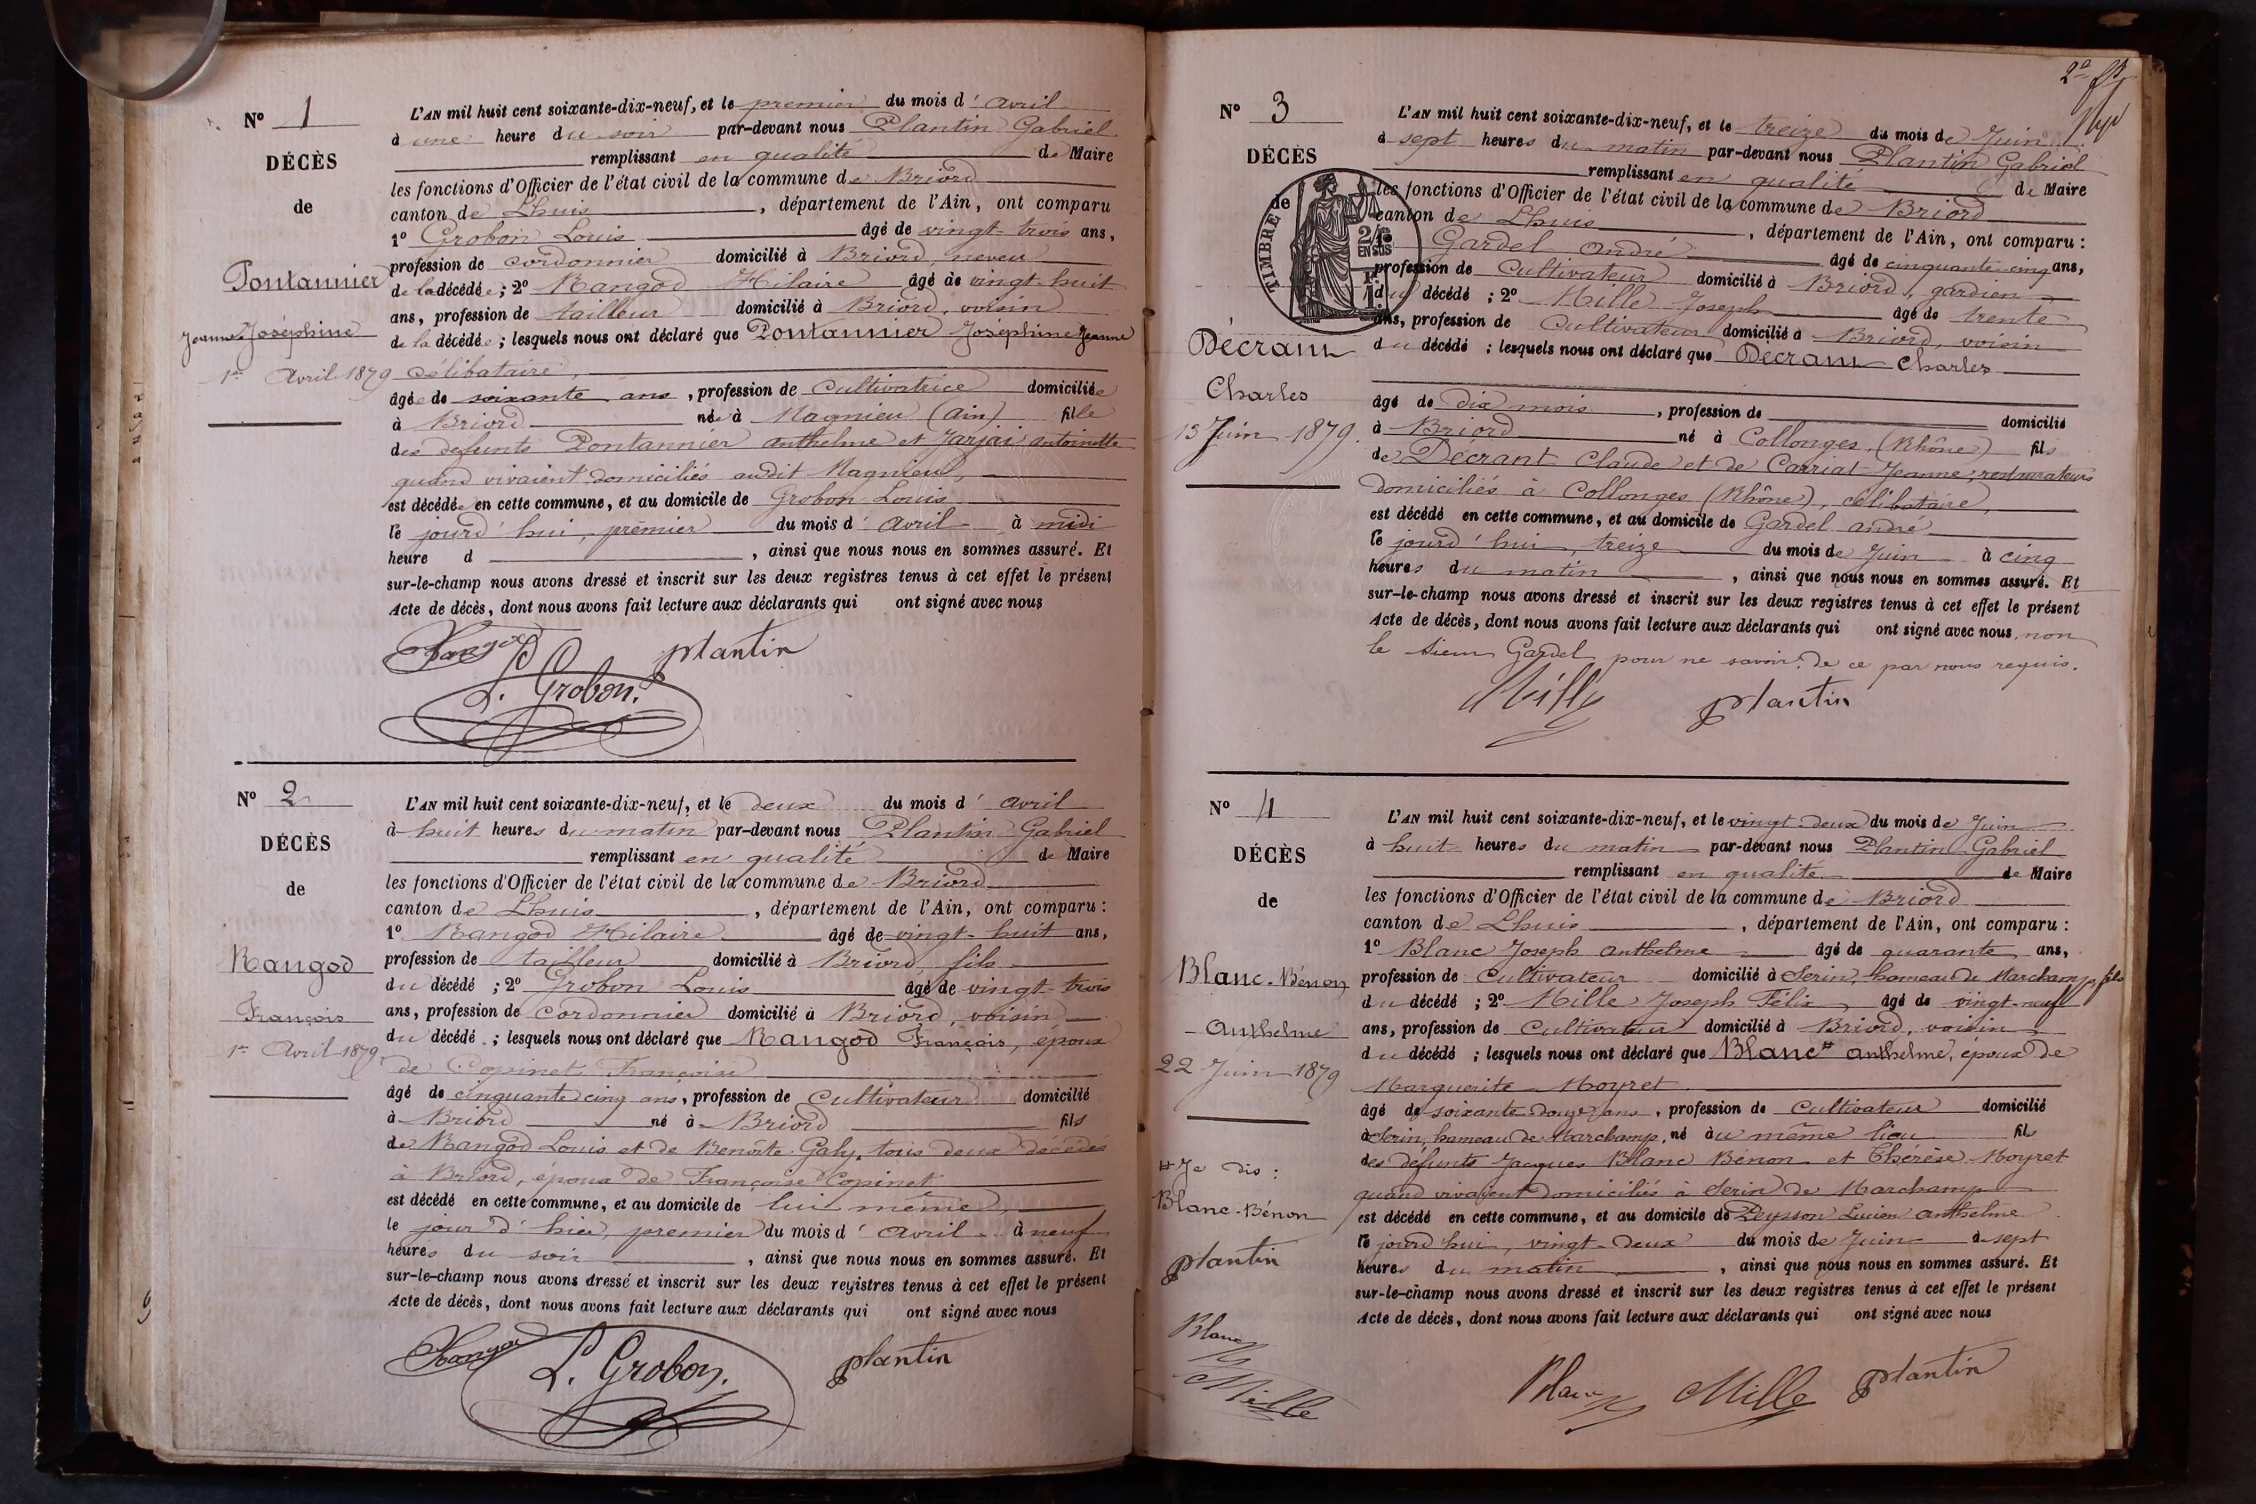 N° 1
DÉCÈS
de
Pontannier
Jeanne Joséphine
1er Avril 1879
L'AN mil huit cent soixante-dix-neuf, et le premier du mois d' avril
à une heure du soir par-devant nous Plantin Gabriel
remplissant en qualité de Maire
les fonctions d'Officier de l'état civil de la commune de Briord
canton de Lhuis, département de l'Ain, ont comparu
1° Grobon Louis âgé de vingt-trois ans,
profession de cordonnier domicilié à Briord, neveu
de la décédée ; 2° Mangod Hilaire âgé de vingt-huit
ans, profession de tailleur domicilié à Briord, voisin
de la décédée ; lesquels nous ont déclaré que Pontannier Joséphine Jeanne
célibataire,
âgée de soixante ans, profession de Cultivatrice domiciliée
à Briord née à Magnieu (Ain) fille
des défunts Pontannier Anthelme et Jarjai Antoinette
quand vivaient domiciliés audit Magnieu,
est décédée en cette commune, et au domicile de Grobon Louis
le jourd'hui, premier du mois d' avril à midi
heure d , ainsi que nous nous en sommes assuré. Et
sur-le-champ nous avons dressé et inscrit sur les deux registres tenus à cet effet le présent
Acte de décès, dont nous avons fait lecture aux déclarants qui ont signé avec nous
Mangod plantin
L. Grobon.
N° 2
DÉCÈS
de
Mangod
François
1er Avril 1879
L'AN mil huit cent soixante-dix-neuf, et le deux du mois d' avril
à huit heures du matin par-devant nous Plantin Gabriel
remplissant en qualité de Maire
les fonctions d'Officier de l'état civil de la commune de Briord
canton de Lhuis, département de l'Ain, ont comparu :
1° Mangod Hilaire âgé de vingt-huit ans,
profession de tailleur domicilié à Briord, fils
du décédé ; 2° Grobon Louis âgé de vingt-trois
ans, profession de cordonnier domicilié à Briord, voisin
du décédé ; lesquels nous ont déclaré que Mangod François, époux
de Copinet Françoise
âgé de cinquante cinq ans, profession de Cultivateur domicilié
à Briord né à Briord fils
de Mangod Louis et de Benoîte Galy, tous deux décédés
à Briord, époux de Françoise Copinet
est décédé en cette commune, et au domicile de lui même,
le jour d'hier, premier du mois d' avril à neuf
heures du soir, ainsi que nous nous en sommes assuré. Et
sur-le-champ nous avons dressé et inscrit sur les deux registres tenus à cet effet le présent
Acte de décès, dont nous avons fait lecture aux déclarants qui ont signé avec nous
Mangod L. Grobon. plantin
N° 3
DÉCÈS
de
TIMBRE
2/10
EN SUS
Décrant
Charles
13 Juin 1879.
L'AN mil huit cent soixante-dix-neuf, et le treize du mois de Juin
à sept heures du matin par-devant nous Plantin Gabriel
remplissant en qualité de Maire
les fonctions d'Officier de l'état civil de la commune de Briord
canton de Lhuis, département de l'Ain, ont comparu :
Gardel André âgé de cinquante cinq ans,
profession de Cultivateur domicilié à Briord, gardien
du décédé ; 2° Mille Joseph âgé de trente
ans, profession de Cultivateur domicilié à Briord, voisin
du décédé ; lesquels nous ont déclaré que Décrant Charles
âgé de dix mois, profession de domicilié
à Briord né à Collonges (Rhône) fils
de Décrant Claude et de Carriat Jeanne, restaurateurs
domiciliés à Collonges (Rhône), célibataire,
est décédé en cette commune, et au domicile de Gardel André
le jourd'hui, treize du mois de Juin à cinq
heures du matin, ainsi que nous nous en sommes assuré. Et
sur-le-champ nous avons dressé et inscrit sur les deux registres tenus à cet effet le présent
Acte de décès, dont nous avons fait lecture aux déclarants qui ont signé avec nous, non
le sieur Gardel pour ne savoir. de ce par nous requis.
Mille plantin
N° 4
DÉCÈS
de
Blanc-Bénon
Anthelme
22 Juin 1879
# Je dis :
Blanc-Bénon
plantin
Blanc
Mille
L'AN mil huit cent soixante-dix-neuf, et le vingt-deux du mois de Juin
à huit heures du matin par-devant nous Plantin Gabriel
remplissant en qualité de Maire
les fonctions d'Officier de l'état civil de la commune de Briord
canton de Lhuis, département de l'Ain, ont comparu :
1° Blanc Joseph Anthelme âgé de quarante ans,
profession de Cultivateur domicilié à Serin, hameau de Marchamp, fils
du décédé ; 2° Mille Joseph Félix âgé de vingt-neuf
ans, profession de Cultivateur domicilié à Briord, voisin
du décédé ; lesquels nous ont déclaré que Blanc # Anthelme, époux de
Marguerite Moyret
âgé de soixante douze ans, profession de Cultivateur domicilié
à Serin, hameau de Marchamp, né au même lieu fils
des défunts Jacques Blanc Bénon et Thérèse Moyret
quand vivaient domiciliés à Serin de Marchamp
est décédé en cette commune, et au domicile de Peysson Lucien Anthelme
le jourd'hui, vingt-deux du mois de Juin à sept
heures du matin, ainsi que nous nous en sommes assuré. Et
sur-le-champ nous avons dressé et inscrit sur les deux registres tenus à cet effet le présent
Acte de décès, dont nous avons fait lecture aux déclarants qui ont signé avec nous
Blanc Mille plantin